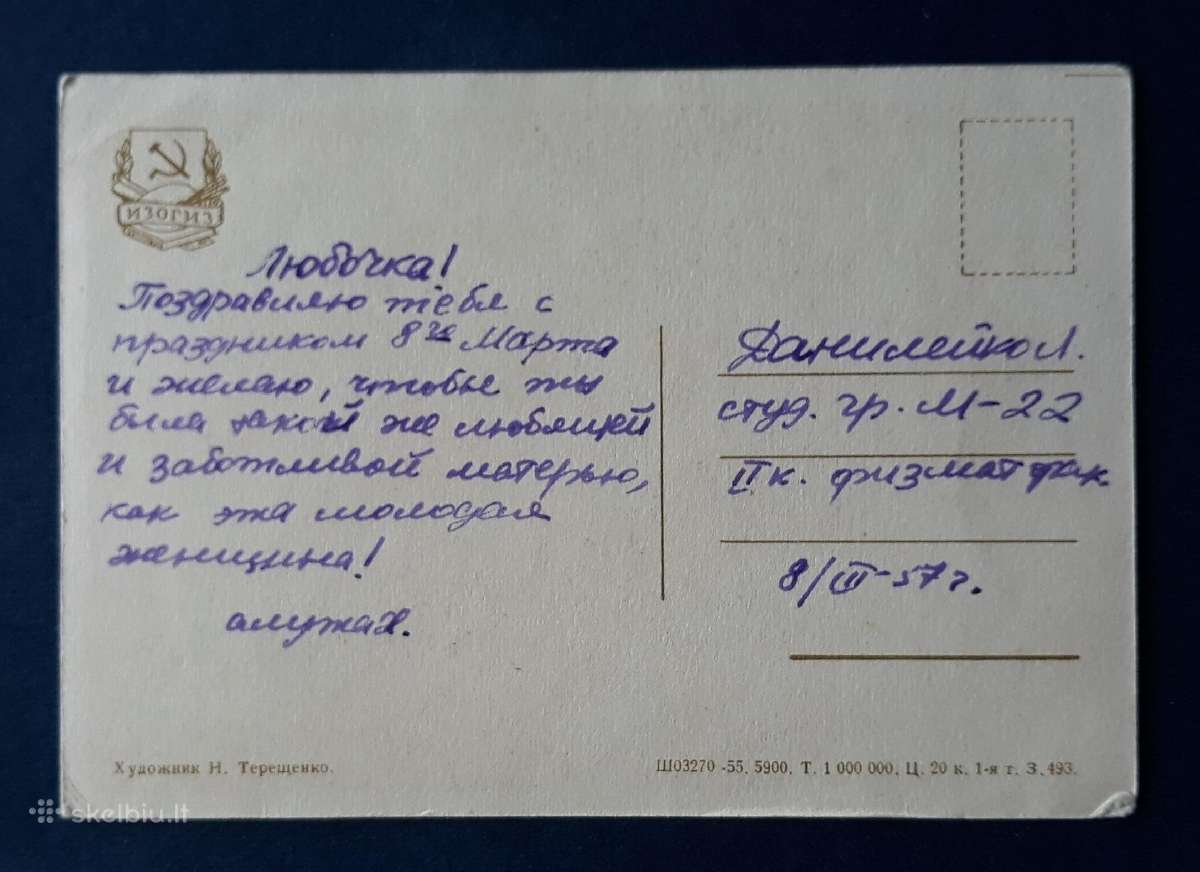 ИЗОГИЗ
Любочка!
Поздравляю тебя с
праздником 8ым Марта
и желаю, чтобы ты
была такой же любящей
и заботливой матерью,
как эта молодая
женщина!
Данилейко Л.
студ. гр. М-22
II к. физмат фак
8/III-57 г.
Художник Н. Терещенко.
Ш03270 -55. 5900. Т. 1 000 000. Ц. 20 к. 1-я т. З. 493.
skelbiu.lt